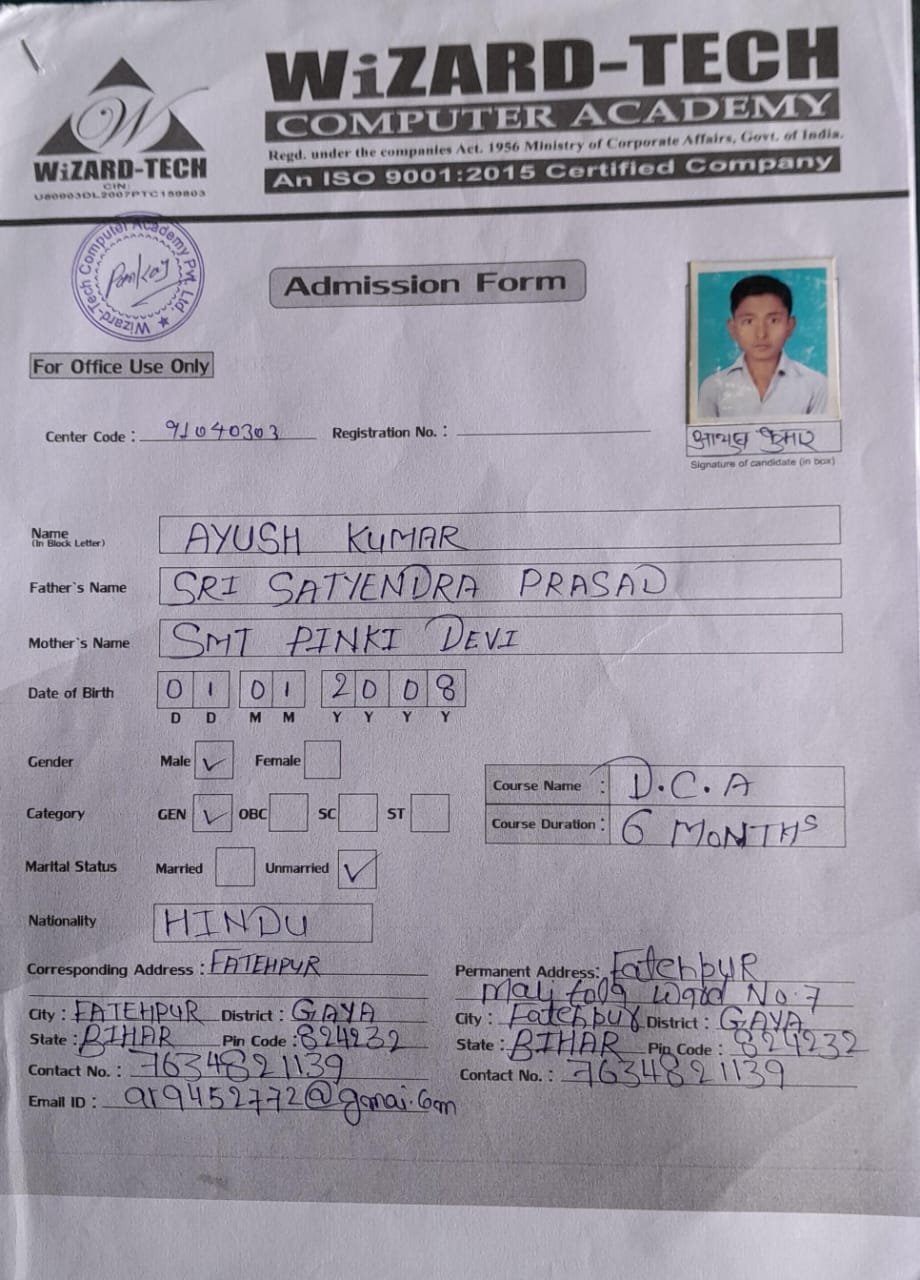 WiZARD-TECH
COMPUTER ACADEMY
Regd. under the companies Act. 1956 Ministry of Corporate Affairs, Govt. of India.
An ISO 9001:2015 Certified Company
W
WiZARD-TECH
CIN:
U80903DL2007PTC159803
Wizard-Tech Computer Academy Pvt. Ltd.
Pankaj
Admission Form
For Office Use Only
Center Code : 91040303 Registration No. :
आयुष कुमार
Signature of candidate (in box)
Name AYUSH KUMAR
(In Block Letter)
Father's Name SRI SATYENDRA PRASAD
Mother's Name SMT PINKI DEVI
Date of Birth 0 1 0 1 2 0 0 8
D D M M Y Y Y Y
Gender Male ✓ Female
Course Name : D.C.A
Category GEN ✓ OBC SC ST
Course Duration : 6 MONTHS
Marital Status Married Unmarried ✓
Nationality HINDU
Corresponding Address : FATEHPUR
City : FATEHPUR District : GAYA
State : BIHAR Pin Code : 824232
Contact No. : 7634821139
Email ID : a19452772@gmai.com
Permanent Address: FatehpUR
Mali tola Ward No. 7
City : Fatehpur District : GAYA
State : BIHAR Pin Code : 824232
Contact No. : 7634821139